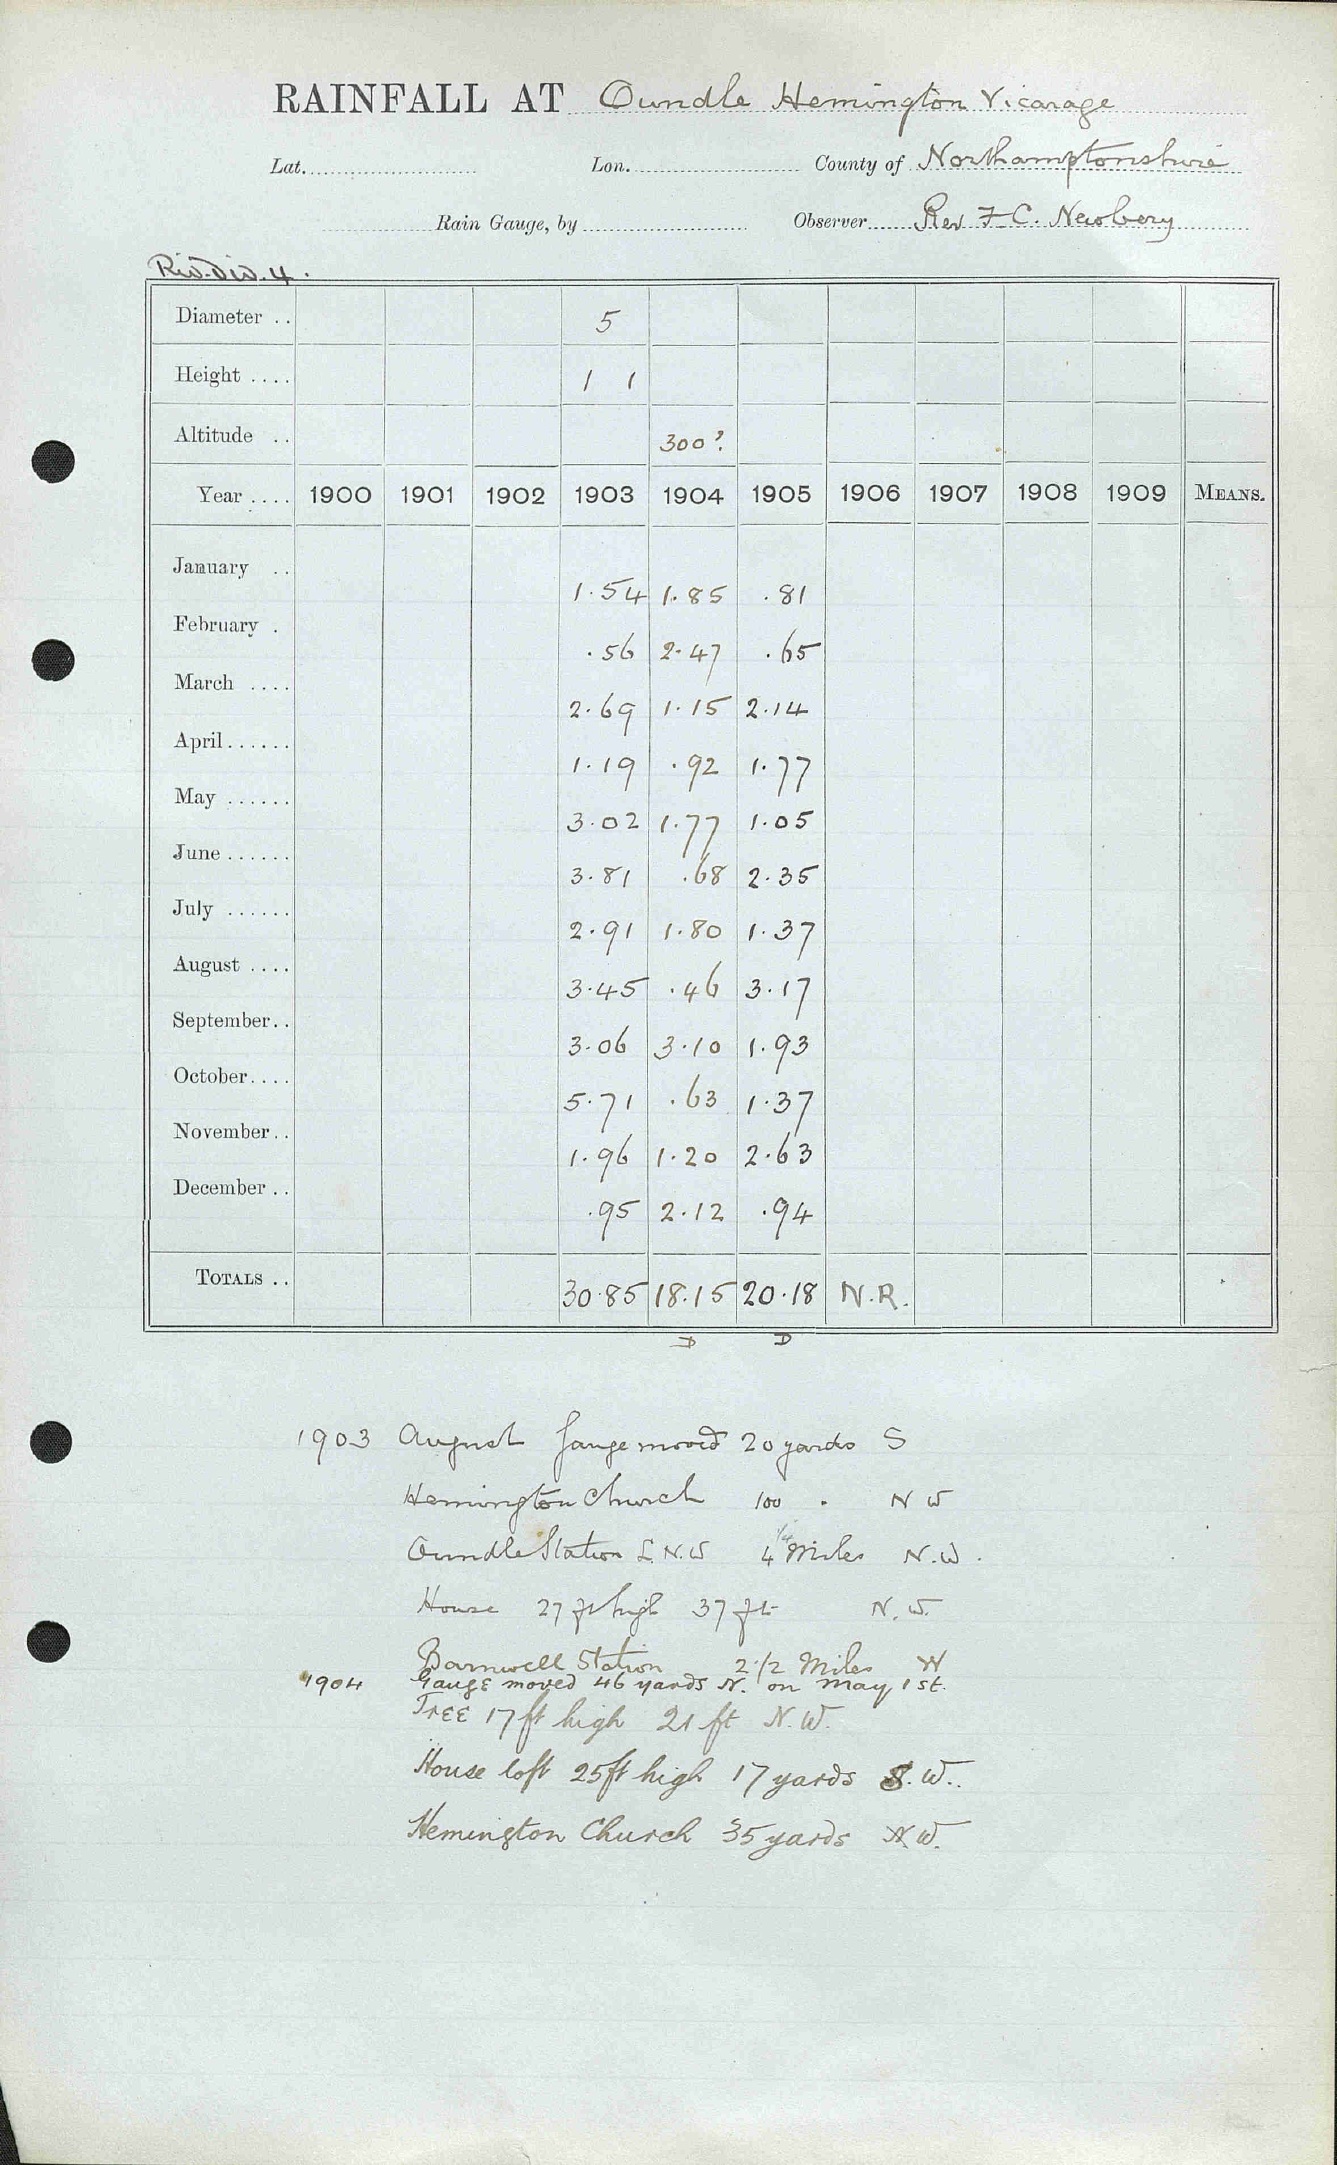 RAINFALL AT Oundle Hemington Vicarage
Lat. Lon. County of Northamptonshire
Rain Gauge, by Observer Rev F C. Newbery
Riv. Div. 4.
Diameter .. 5
Height .... 1 1
Altitude .. 300?
Year .... 1900 1901 1902 1903 1904 1905 1906 1907 1908 1909 MEANS.
January .. 1.54 1.85 .81
February . .56 2.47 .65
March .... 2.69 1.15 2.14
April...... 1.19 .92 1.77
May ...... 3.02 1.77 1.05
June...... 3.81 .68 2.35
July ...... 2.91 1.80 1.37
August .... 3.45 .46 3.17
September.. 3.06 3.10 1.93
October.... 5.71 .63 1.37
November.. 1.96 1.20 2.63
December.. .95 2.12 .94
TOTALS .. 30.85 18.15 20.18 N.R.
D D
1903 August gauge moved 20 yards S
Hemington Church 100 . N W
Oundle Station L.N.W 4 1/4 Miles N.W.
House 27 ft high 37 ft N.W.
Barnwell Station 2 1/2 Miles W
1904 Gauge moved 46 yards N. on May 1st.
Tree 17 ft high 21 ft N.W.
House loft 25ft high 17 yards S.W..
Hemington Church 35 yards N.W.